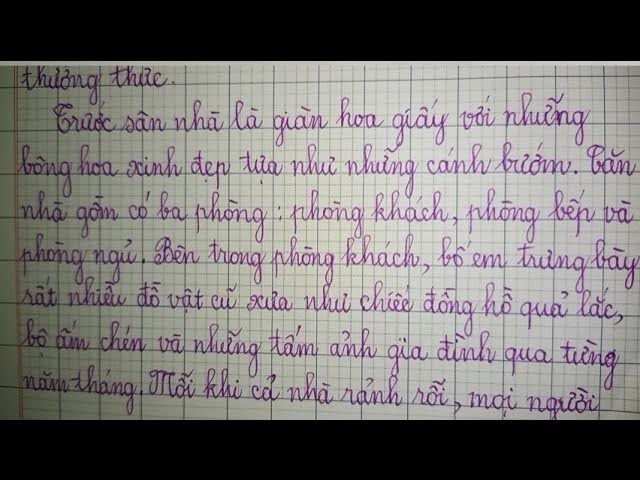 thưởng thức.
Trước sân nhà là giàn hoa giấy với những
bông hoa xinh đẹp tựa như những cánh bướm. Căn
nhà gồm có ba phòng: phòng khách, phòng bếp và
phòng ngủ. Bên trong phòng khách, bố em trưng bày
rất nhiều đồ vật cũ xưa như chiếc đồng hồ quả lắc,
bộ ấm chén và những tấm ảnh gia đình qua từng
năm tháng. Mỗi khi cả nhà rảnh rỗi, mọi người